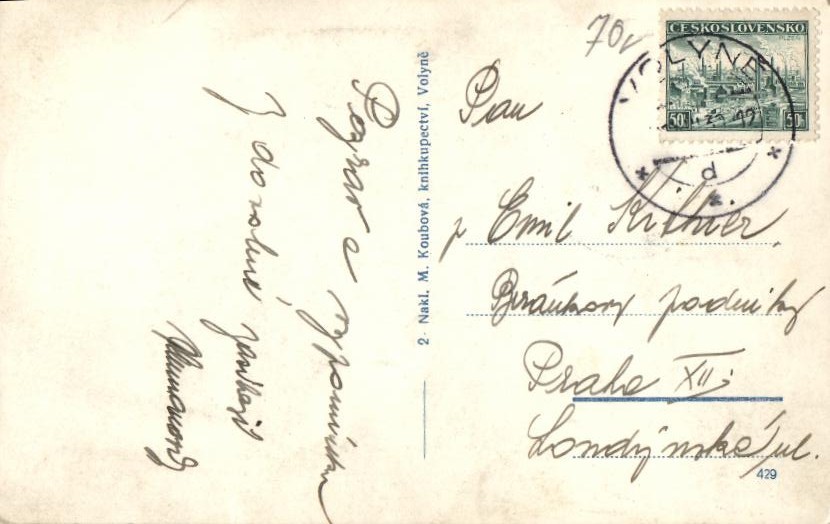 Pozdrav a vzpomínku
z dovolené
2 Nakl. M. Koubová, knihkupectví, Volyně
70
ČESKOSLOVENSKO
PLZEŇ
50h 50h
VOLYNĚ
d
Pan
p Emil
podniky
Praha XII.
Londýnská ul.
429